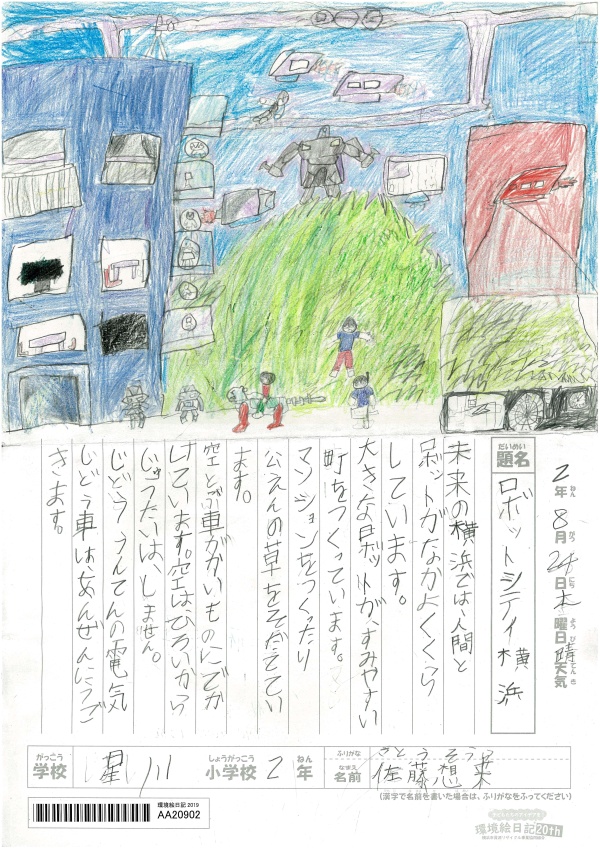 2年8月24日木曜日晴天気
ねん がつ にち ようび てんき
だいめい
題名
ロボットシティ横浜
未来の横浜では、人間と
ロボットがなかよくくら
しています。
大きなロボットが、すみやすい
町をつくっています。
マンションをつくったり
公えんの草をそだててい
ます。
空とぶ車がかいものにでか
けています。空はひろいから
じゅうたいは、しません。
じどううんてんの電気
じどう車は、あんぜんにうご
きます。
がっこう しょうがっこう ねん
学校 星川 小学校 2年
ふりがな さとうそうま
なまえ
名前 佐藤想来
(漢字で名前を書いた場合は、ふりがなをふってください)
環境絵日記 2019
AA20902
環境絵日記20th